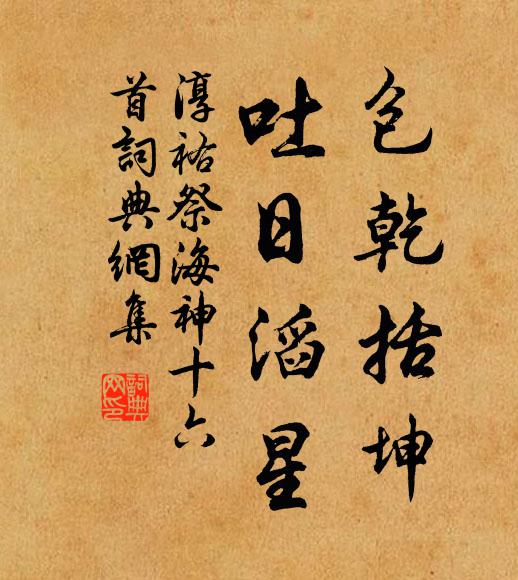 包乾括坤
吐日滔星
淳祐祭海神十六
首詞典網集
詞典
网印